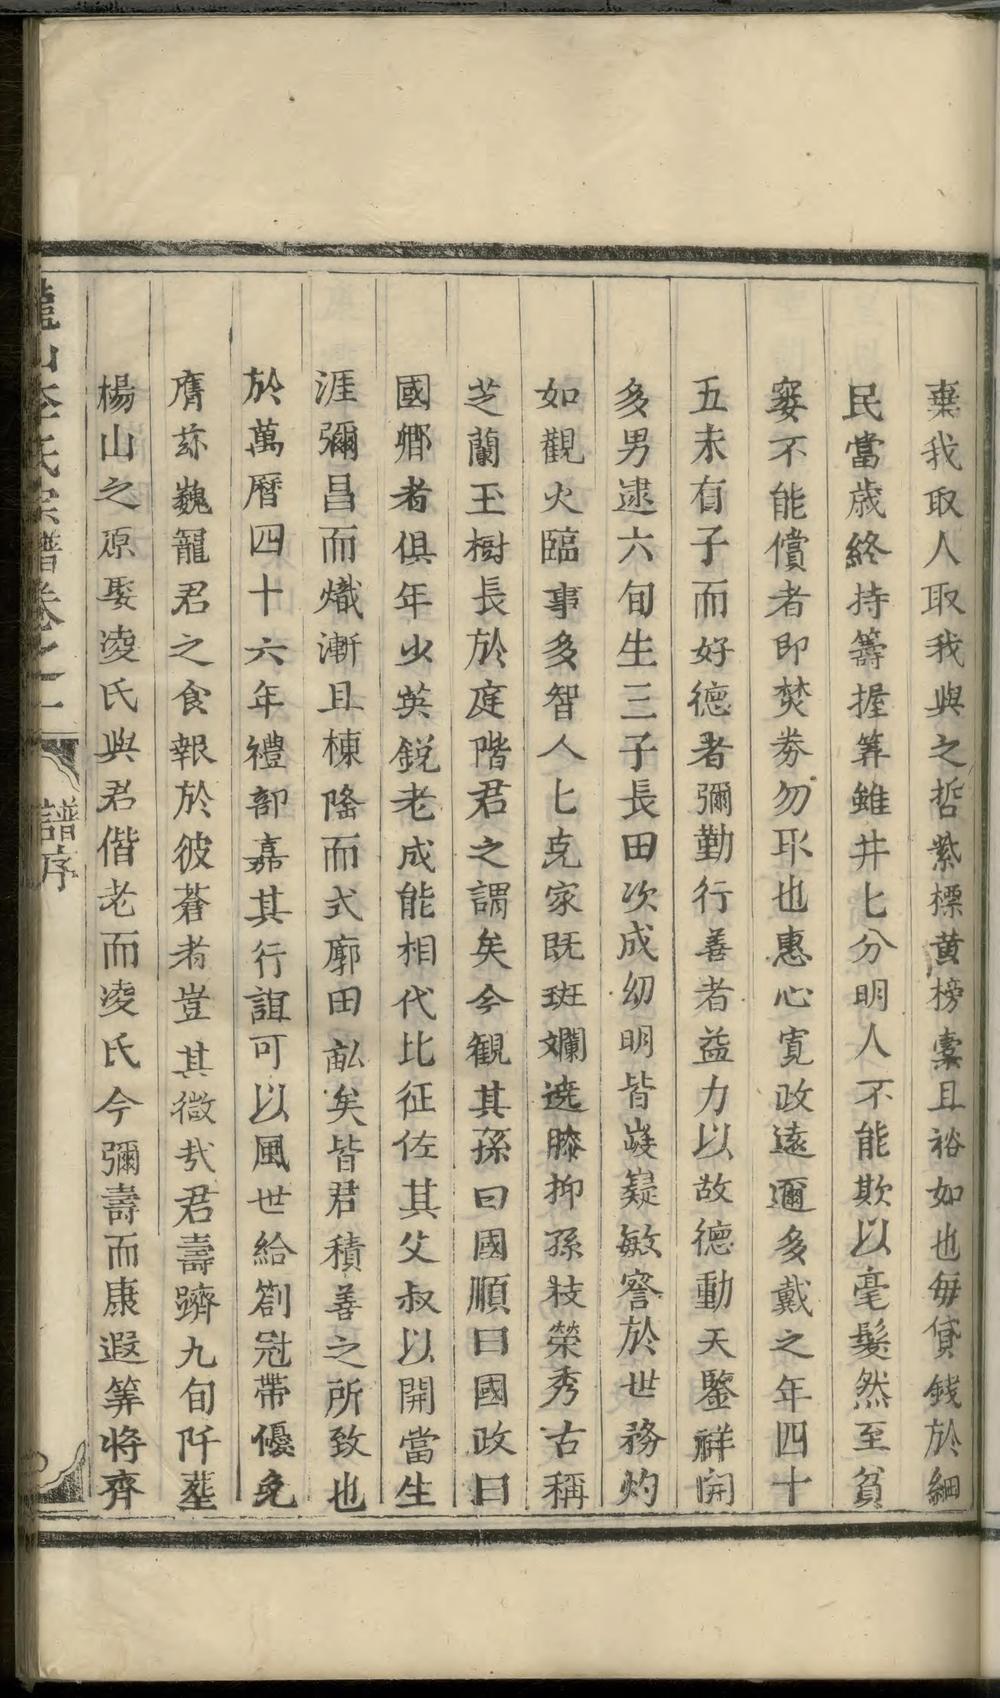 棄我取人取我與之哲紫標黄榜橐且裕如也毎貸錢於細
民當歳終持籌握筭雖井匕分明人不能欺以毫髮然至貧
窭不能償者即焚券勿取也惠心寛政遠邇多戴之年四十
五未有子而好德者彌勤行善者益力以故德動天鑒祥開
多男逮六旬生三子長田次成幼明皆嶷嶷敏詧於世務灼
如觀火臨事多智人匕克家既斑斕遶膝抑孫枝榮秀古稱
芝蘭玉樹長於庭階君之謂矣今観其孫曰國順曰國政曰
國卿者俱年少英鋭老成能相代比征佐其父叔以開當生
涯彌昌而熾漸且棟隆而式廓田畝矣皆君積善之所致也
於萬曆四十六年禮部嘉其行誼可以風世給劄冠帶優免
膺茲巍寵君之食報於彼蒼者豈其微㢤君壽躋九旬阡塟
楊山之原娶凌氏與君偕老而凌氏今彌壽而康遐筭將齊
龍山李氏宗譜卷之一 譜序